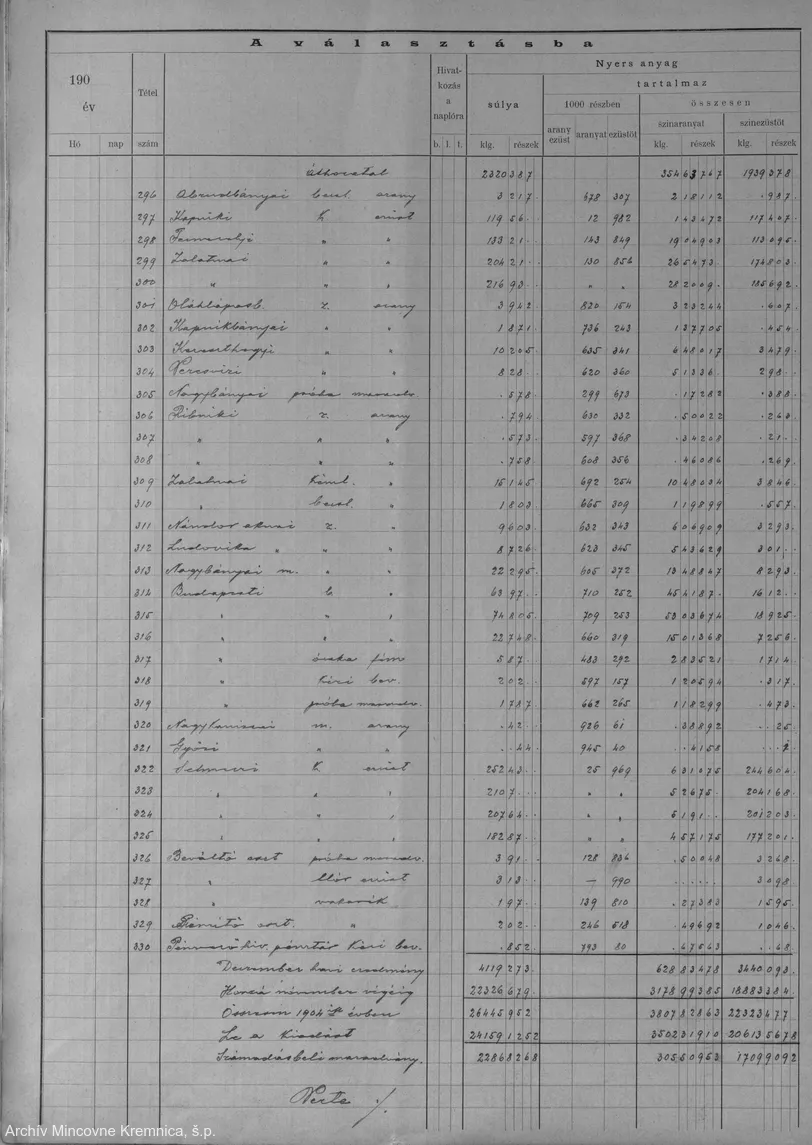 A választásba
190
év
Hó nap
Tétel
szám
Hivat-
kozás
a
naplóra
b. l. t.
Nyers anyag
súlya
klg. részek
tartalmaz
1000 részben
arany
ezüst
aranyat ezüstöt
összesen
színaranyat
klg. részek
színezüstöt
klg. részek
Áthozatal 2320387 35463767 1939378
296 Abrudbányai bevál. arany 3217 678 307 218112 987
297 Kapniki k. ezüst 11956 12 982 143472 117407
298 " " 13321 143 849 1904903 113095
299 Zalatnai " " 20421 130 856 265473 174803
300 " " 21693 " " 282009 185692
301 Oláhláposb. z. arany 3942 820 154 323244 607
302 Kapnikbányai " " 1871 736 243 137705 454
303 " " 10205 635 341 648017 3479
304 Verespvizi " " 828 620 360 51336 298
305 Nagybányai próba maradv. 578 299 673 17282 388
306 Ribniki z. arany 794 630 332 50022 263
307 " " " 573 597 368 34208 21
308 " " " 758 608 356 46086 269
309 Zalatnai " 15145 692 254 1048034 3846
310 " bevál. " 1803 665 309 119899 557
311 Nándor aknai z. " 9603 632 343 606909 3293
312 Ludovika " " " 8726 623 345 543629 301
313 Nagybányai m. " 22295 605 372 1348847 8293
314 Budapesti b. " 6397 710 252 454187 1612
315 " " " 74805 709 253 5303674 18925
316 " " " 22748 660 319 1501368 7256
317 " fém 587 483 292 283521 1714
318 " bev. 202 597 157 120594 317
319 " próba maradv. 1787 662 265 118299 473
320 Nagykanizsai m. arany 42 926 61 38892 25
321 Győri " " 44 945 40 4158
322 k. ezüst 25243 25 969 631075 244604
323 " " " 2107 " " 52675 204168
324 " " " 20764 " " 5191 201203
325 " " " 18287 " " 457175 177201
326 Beváltó oszt. próba maradv. 391 128 836 50048 3268
327 " ezüst 313 — 990 3098
328 " 197 139 810 27383 1595
329 oszt. " 202 246 518 49692 1046
330 Pénzverő hiv. pénztár bev. 852 793 80 67563 68
December havi eredmény 4119273 62883478 3440093
Hozzá november végéig 22326679 317899385 18883384
Összesen 1904 évben 26445952 380782863 22323477
Le a kiadást 241591252 350231910 206135678
Számadásbeli maradvány. 22868268 30550953 17099092
Archív Mincovne Kremnica, š.p.